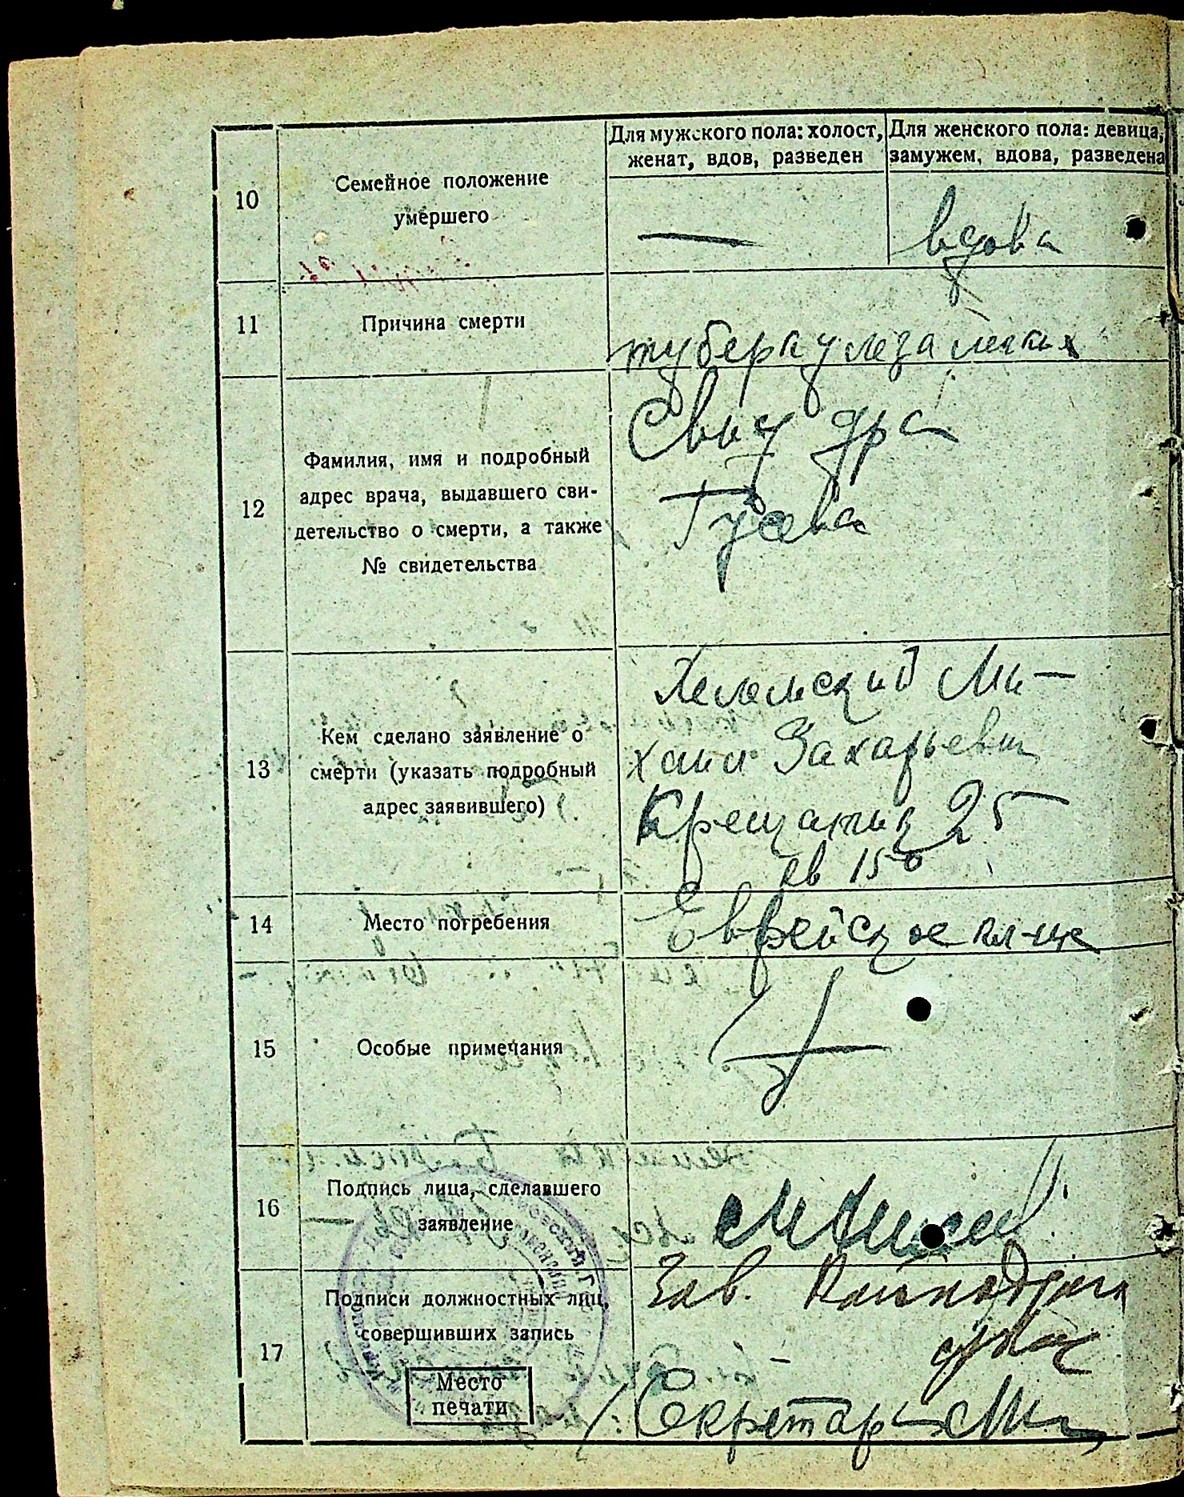 Для мужского пола: холост, женат, вдов, разведен
Для женского пола: девица, замужем, вдова, разведена
10
Семейное положение
умершего
—
вдова
11
Причина смерти
туберкулеза легких
12
Фамилия, имя и подробный
адрес врача, выдавшего сви-
детельство о смерти, а также
№ свидетельства
дра
Гусева
13
Кем сделано заявление о
смерти (указать подробный
адрес заявившего)
Хелемский Ми-
хаил Захарьевич
Крещатик 25
кв 150
14
Место погребения
Еврейское кл-ще
15
Особые примечания
16
Подпись лица, сделавшего
заявление
17
Подписи должностных лиц,
совершивших запись
Место
печати
Зав.
Секретарь